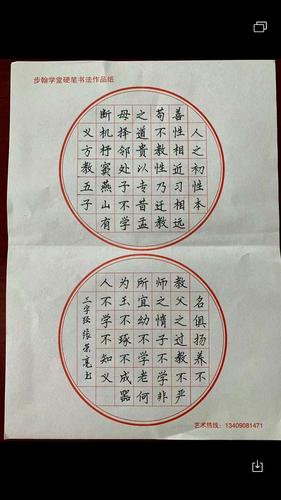 步翰学堂硬笔书法作品纸
人之初性本
善性相近习相远
苟不教性乃迁教
之道贵以专昔孟
母择邻处子不学
断机杼窦燕山有
义方教五子
名俱扬养不
教父之过教不严
师之惰子不学非
所宜幼不学老何
为玉不琢不成器
人不学不知义
三字经 张荣亮书
艺术热线：13409081471